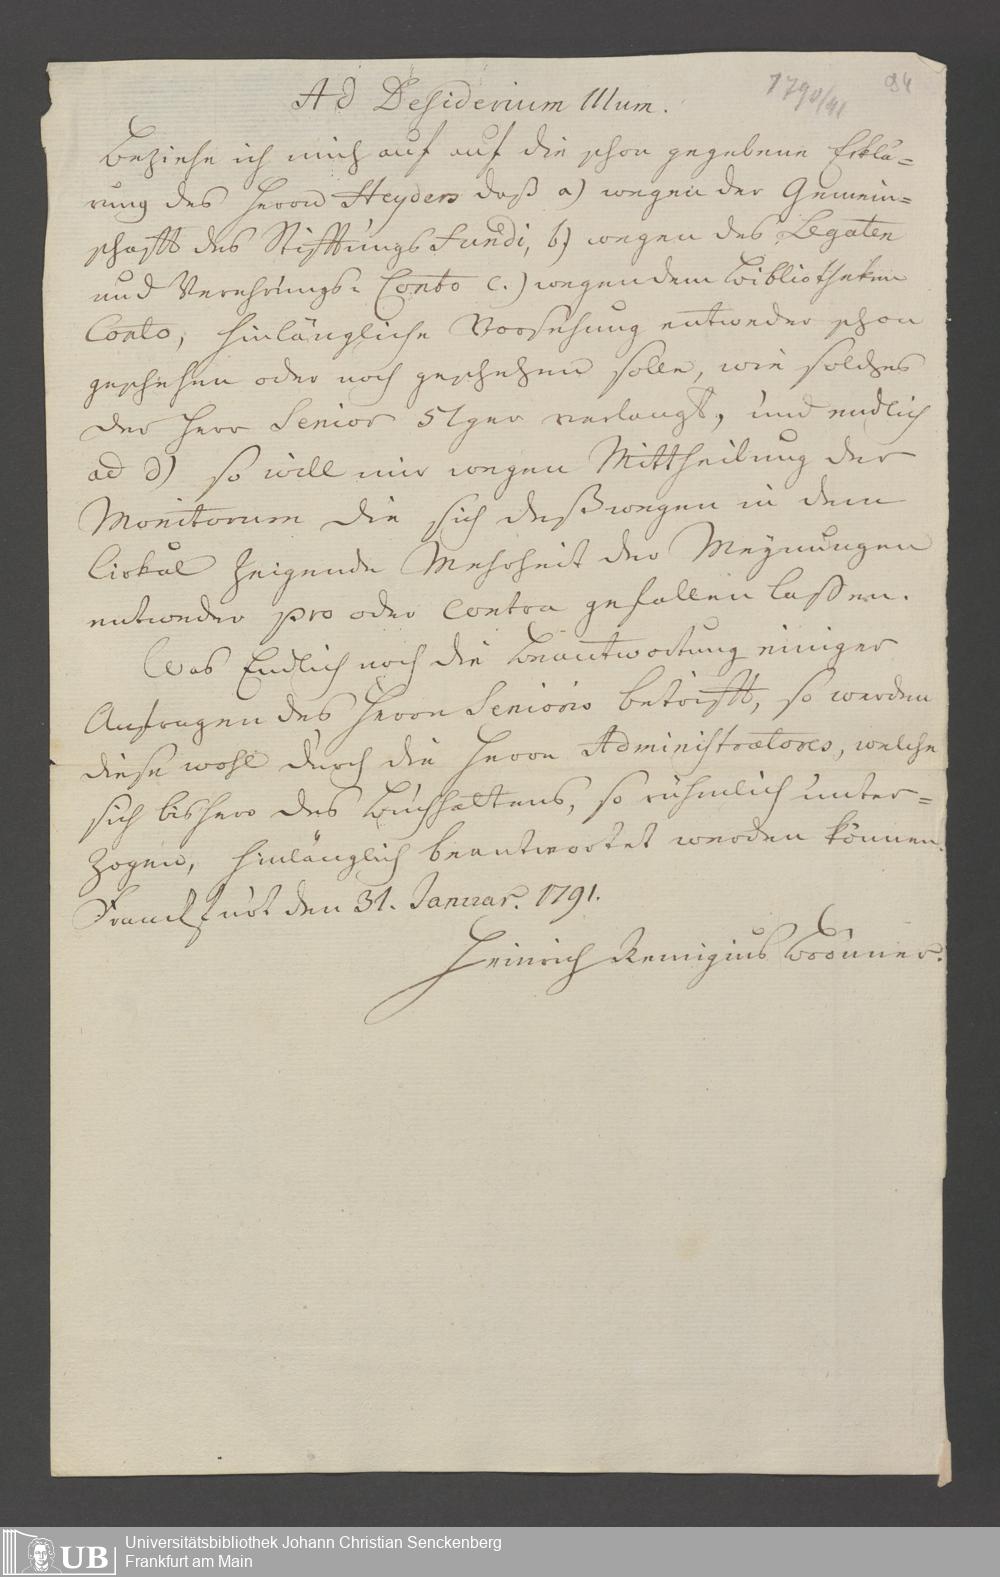 Ad Desiderium IIIum.
1790/91
84
Beziehe ich mich auf auf die schon gegebene Erklä-
rung des Herrn Heyders daß a) wegen der Gemein-
schafft des Stifftungs Fundi, b) wegen des Legaten
und Verehrungs- Conto c.) wegen dem Bibliotheken
Conto, hinlängliche Vorsehung entweder schon
geschehen oder noch geschehen solle, wie solches
der Herr Senior verlangt, und endlich
ad d) so will mir wegen Mittheilung der
Monitorum die sich deßwegen in dem
Cirkul zeigende Mehrheit der Meynungen
entweder pro oder contra gefallen laßen.
Was Endlich noch die Beantwortung einiger
Anfragen des Herrn Senioris betrifft, so werden
diese wohl durch die Herrn Administratores, welche
sich bishero des Buchhaltens, so rühmlich unter-
zogen, hinlänglich beantwortet werden können.
Franckfurt den 31. Januar. 1791.
Heinrich Remigius Brönner.
UB
Universitätsbibliothek Johann Christian Senckenberg
Frankfurt am Main